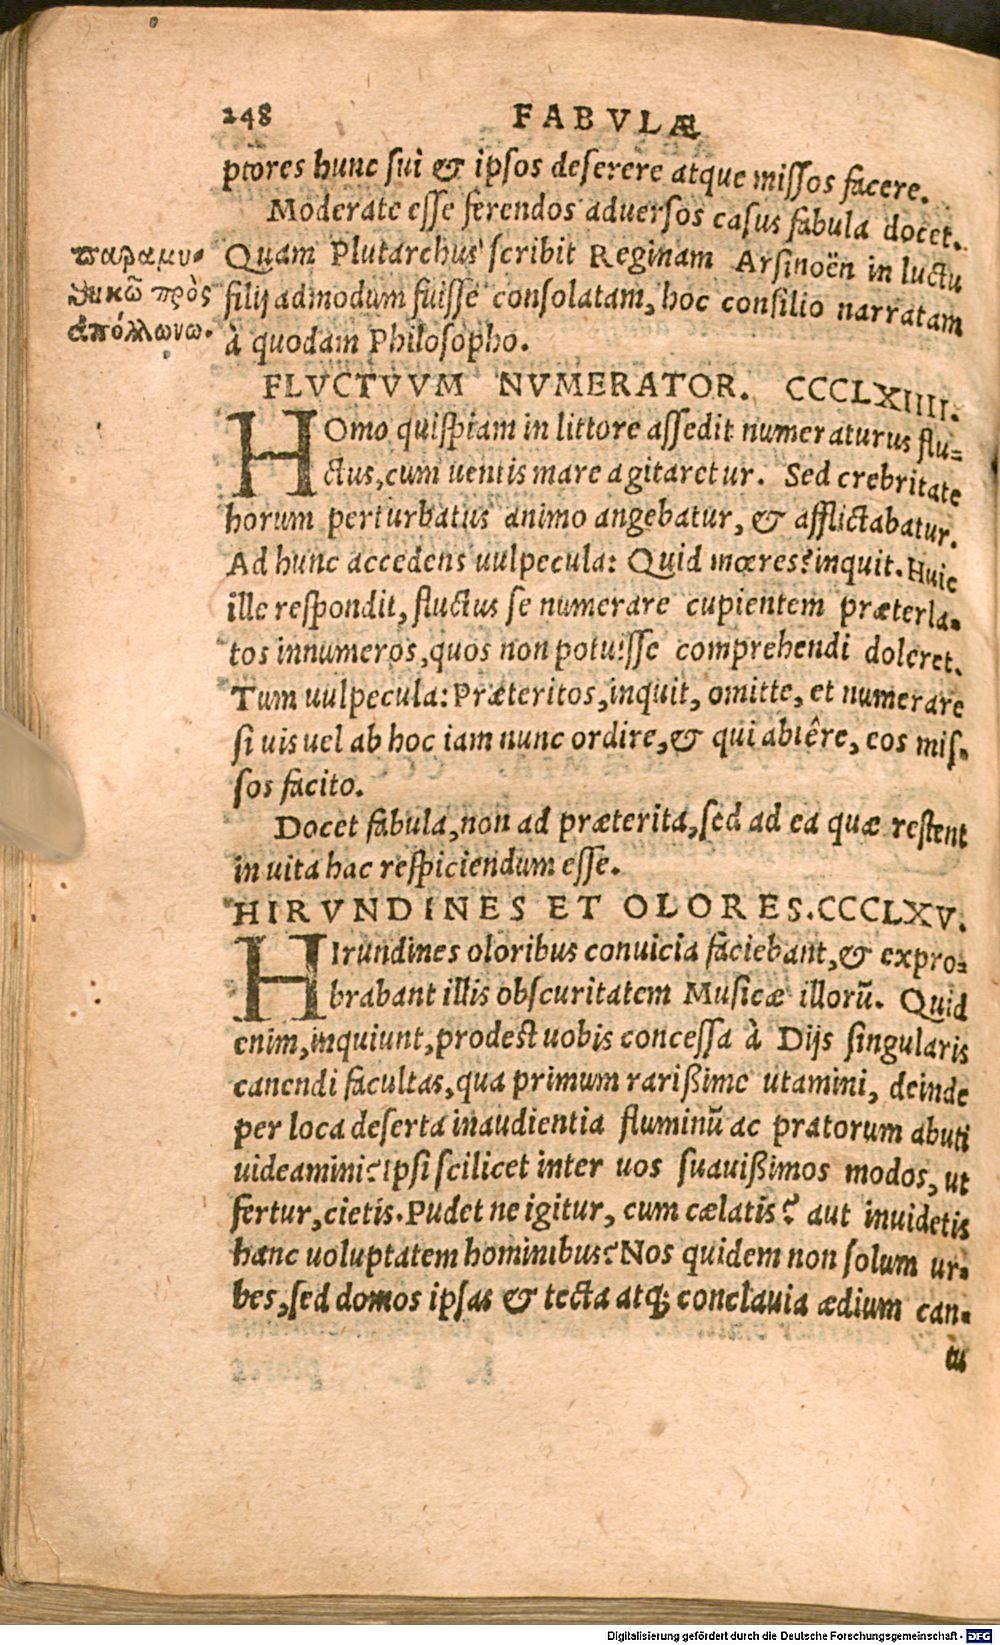 248 FABVLÆ
ptores hunc sui & ipsos deserere atque missos facere.
Moderate esse ferendos aduersos casus fabula docet.
Quam Plutarchus scribit Reginam Arsinoën in luctu
filij admodum fuisse consolatam, hoc consilio narratam
à quodam Philosopho.
παραμυ-
θικῶ πρὸς
ἀπόλλωνιο.
FLVCTVVM NVMERATOR. CCCLXIIII.
HOmo quispiam in littore assedit numeraturus flu-
ctus, cum uentis mare agitaretur. Sed crebritate
horum perturbatus animo angebatur, & afflictabatur.
Ad hunc accedens uulpecula: Quid mœres? inquit. Huic
ille respondit, fluctus se numerare cupientem præterla-
tos innumeros, quos non potuisse comprehendi doleret.
Tum uulpecula: Præteritos, inquit, omitte, et numerare
si uis uel ab hoc iam nunc ordire, & qui abiêre, eos mis-
sos facito.
Docet fabula, non ad præterita, sed ad ea quæ restent
in uita hac respiciendum esse.
HIRVNDINES ET OLORES. CCCLXV.
HIrundines oloribus conuicia faciebant, & expro-
brabant illis obscuritatem Musicæ illorũ. Quid
enim, inquiunt, prodest uobis concessa à Dijs singularis
canendi facultas, qua primum rarißime utamini, deinde
per loca deserta inaudientia fluminũ ac pratorum abuti
uideamini? Ipsi scilicet inter uos suauißimos modos, ut
fertur, cietis. Pudet ne igitur, cum cælatis? aut inuidetis
hanc uoluptatem hominibus? Nos quidem non solum ur-
bes, sed domos ipsas & tecta atq; conclauia ædium can-
tu
Digitalisierung gefördert durch die Deutsche Forschungsgemeinschaft - DFG